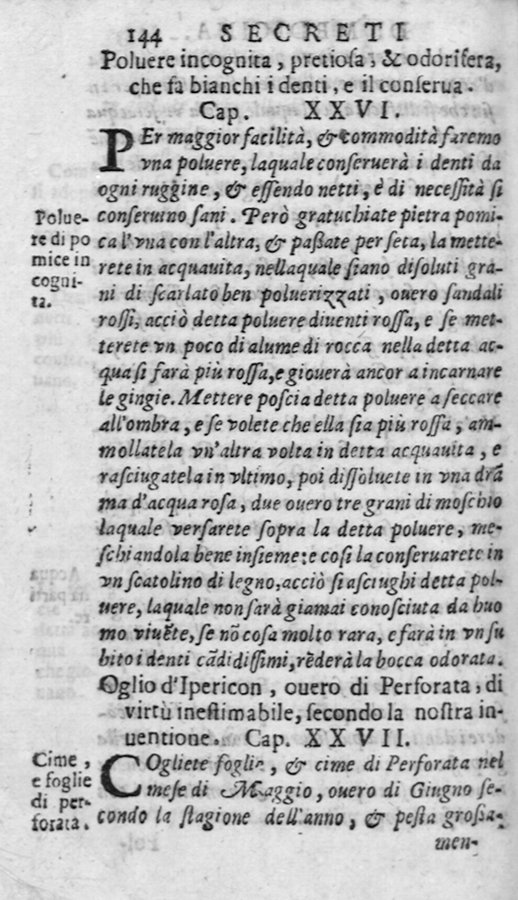 144 SECRETI
Poluere incognita, pretiosa, & odorifera,
che fa bianchi i denti, e il conserua.
Cap. XXVI.
PEr maggior facilità, & commodità faremo
vna poluere, laquale conseruerà i denti da
ogni ruggine, & essendo netti, è di necessità si
conseruino sani. Però gratuchiate pietra pomi-
ca l'vna con l'altra, & passate per seta, la mette-
rete in acquauita, nellaquale siano disoluti gra-
ni di scarlato ben poluerizzati, ouero sandali
rossi, acciò detta poluere diuenti rossa, e se met-
terete vn poco di alume di rocca nella detta ac-
qua si farà più rossa, e giouerà ancor a incarnare
le gingie. Mettere poscia detta poluere a seccare
all'ombra, e se volete che ella sia più rossa, am-
mollatela vn'altra volta in detta acquauita, e
rasciugatela in vltimo, poi dissoluete in vna drã
ma d'acqua rosa, due ouero tre grani di moschio
laquale versarete sopra la detta poluere, me-
schiandola bene insieme: e così la conseruarete in
vn scatolino di legno, acciò si asciughi detta pol-
uere, laquale non sarà giamai conosciuta da huo
mo viuẽte, se nõ cosa molto rara, e farà in vn su
bito i denti cãdidissimi, rẽderà la bocca odorata.
Polue-
re di po
mice in
cogni-
ta.
Oglio d'Ipericon, ouero di Perforata, di
virtù inestimabile, secondo la nostra in-
uentione. Cap. XXVII.
COgliete foglie, & cime di Perforata nel
mese di Maggio, ouero di Giugno se-
condo la stagione dell'anno, & pesta grossa-
Cime,
e foglie
di per-
forata.
men-